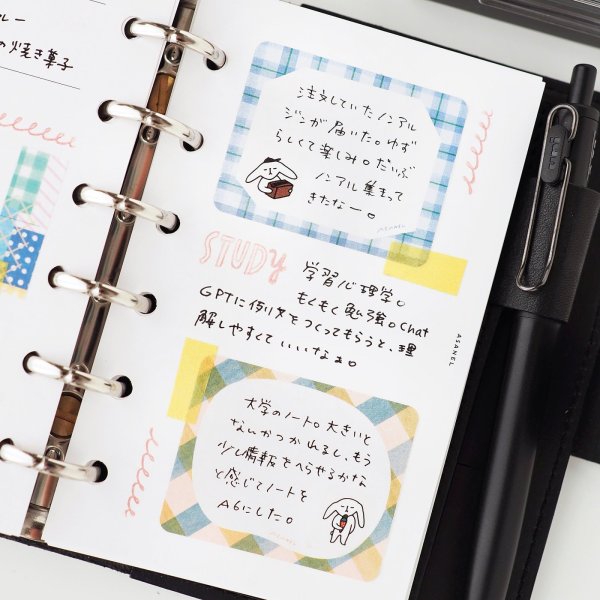 レー
の焼き菓子
注文していたノンアル
ジンが届いた。ゆず
らしくて楽しみ。だいぶ
ノンアル集まって
きたなー。
ASANEL
STUDY
学習心理学。
もくもく勉強。Chat
GPTに例文をつくってもらうと、理
解しやすくていいなぁ。
ASANEL
大学のノート。大きいと
なんかつかれるし、もう
少し情報をへらせるかな
と感じてノートを
A6にした。
ASANEL